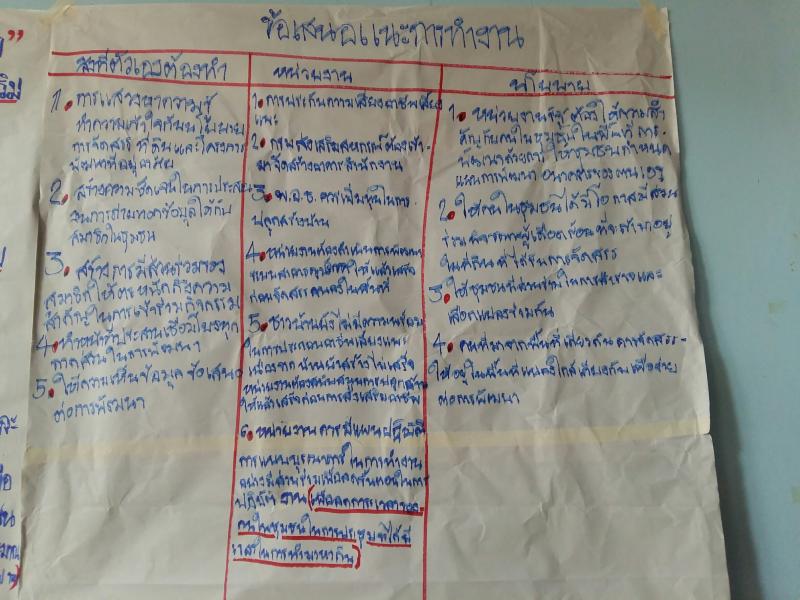 ข้อเสนอแนะการทำงาน
สิ่งที่ตัวเองต้องทำ
1. การแสวงหาความรู้
ทำความเข้าใจกับนโยบาย
การจัดสรรที่ดินและโครงการ
พัฒนาที่อยู่อาศัย
2. สร้างความชัดเจนในการประสาน
งานการถ่ายทอดข้อมูลให้กับ
สมาชิกในชุมชน
3. สร้างการมีส่วนร่วมของ
สมาชิกให้ตระหนักถึงความ
สำคัญในการเข้าร่วมกิจกรรม
4. ทำหน้าที่ประสานเชื่อมโยงทุก
ภาคส่วนในการพัฒนา
5. ให้ความเห็นข้อมูล ข้อเสนอ
ต่อการพัฒนา
หน่วยงาน
1. การประกันความเสี่ยงอาชีพเลี้ยง
แพะ
2. กรมส่งเสริมสหกรณ์ต้องเข้า
มาจัดสร้างอาคารสำนักงาน
3. พ.อ.ช. ควรเพิ่มทุนในการ
ปลูกสร้างบ้าน
4. หน่วยงานต้องดำเนินการพัฒนา
ระบบสาธารณูปโภคให้แล้วเสร็จ
ก่อนจัดสรรคนลงในพื้นที่
5. ชาวบ้านยังไม่มีความพร้อม
ในการประกอบอาชีพเลี้ยงแพะ
เนื่องจากบ้านพักสร้างไม่เสร็จ
หน่วยงานต้องสนับสนุนการปลูกสร้าง
ให้แล้วเสร็จก่อนการส่งเสริมอาชีพ
6. หน่วยงานควรมีแผนปฏิบัติ
การแบบบูรณาการในการทำงาน
อย่างมีส่วนร่วมเพื่อลดขั้นตอนในการ
ปฏิบัติงาน (เพื่อลดภาระเวลาของ
คนในชุมชนในการประชุมที่ได้มี
เวลาในการทำมาหากิน)
นโยบาย
1. หน่วยงานรัฐต้องให้ความสำ
คัญกับคนในชุมชนในพื้นที่การ
พัฒนาต้องการให้ชุมชนกำหนด
แผนการพัฒนา อนาคตของตนเอง
2. ให้คนในชุมชนได้มีโอกาสมีส่วน
ร่วมพิจารณาผู้เดือดร้อนที่จะเข้ามาอยู่
ในที่ดินที่ได้รับการจัดสรร
3. ให้ชุมชนมีส่วนร่วมในการพิจารณาและ
เลือกแปลงร่วมกัน
4. คนที่มาจากพื้นที่เดียวกัน ควรจัดสรร-
ให้อยู่ในพื้นที่แปลงใกล้เคียงกันเพื่อง่าย
ต่อการพัฒนา